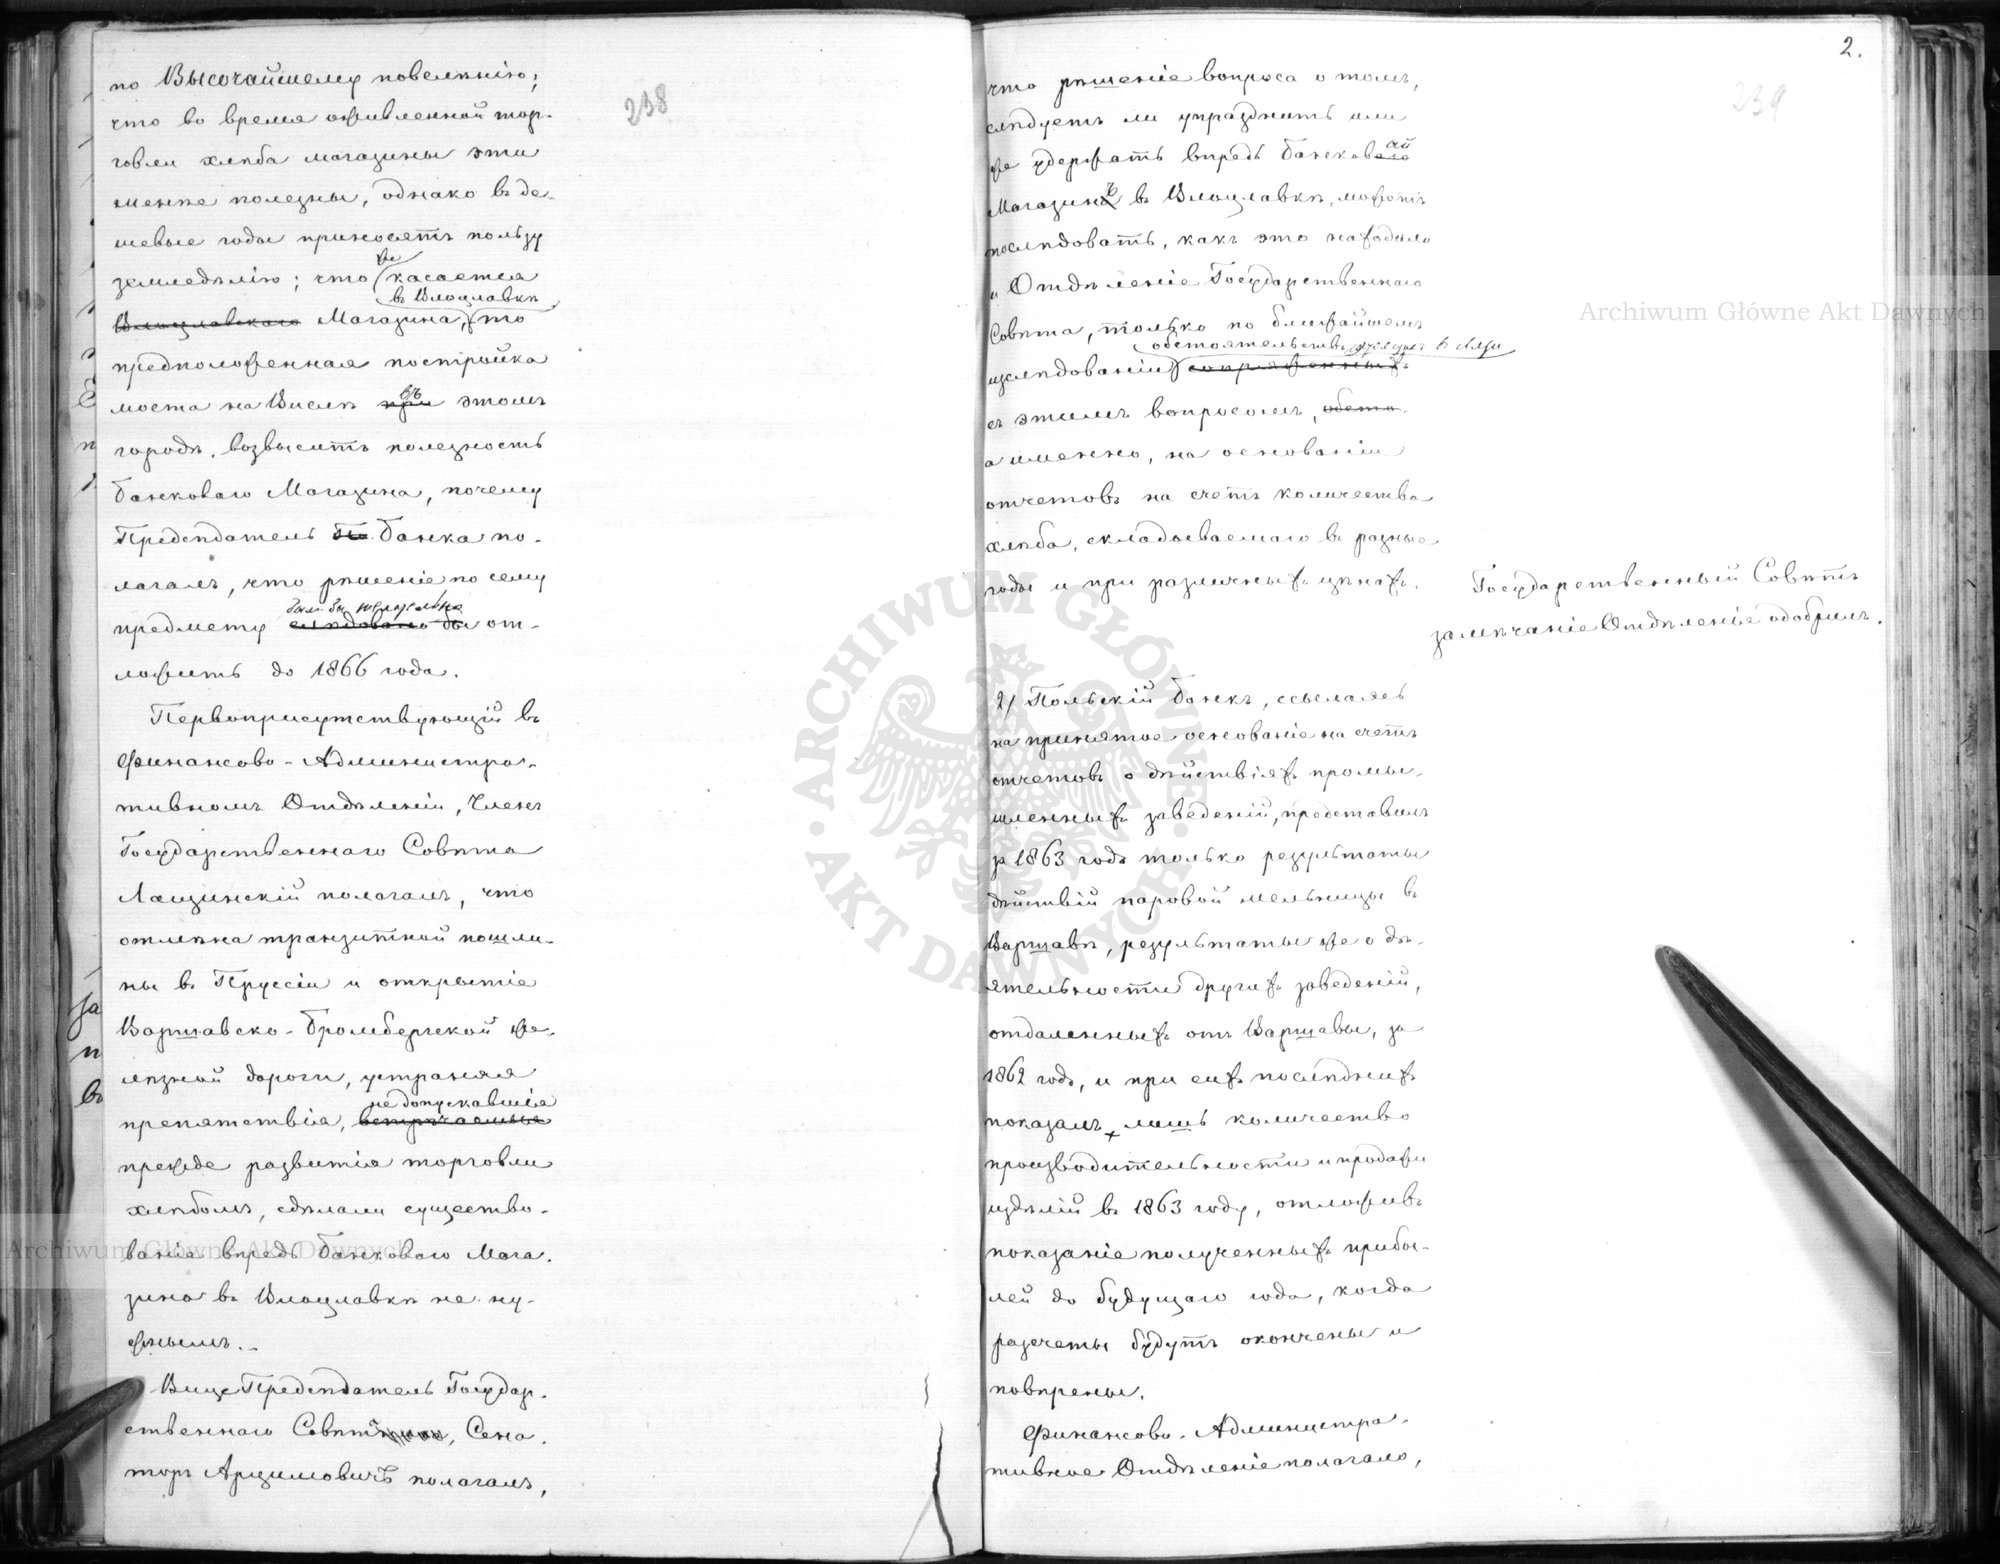 238
по Высочайшему повелѣнію;
что во время оживленной тор-
говли хлѣба магазины эти
менѣе полезны, однако въ де-
шевые годы приносятъ пользу
же
земледѣлію; что касается
въ Влоцлавкѣ
Влоцлавскаго Магазина, то
предположенная постройка
въ
моста на Вислѣ при этомъ
городѣ, возвыситъ полезность
банковаго Магазина, почему
Предсѣдатель По Банка по-
лагалъ, что рѣшеніе по сему
было бы желательно
предмету слѣдовало бы от-
ложить до 1866 года.
Первоприсутствующій въ
Финансово-Администра-
тивномъ Отдѣленіи, Членъ
Государственнаго Совѣта
Лащинскій полагалъ, что
отмѣна транзитной пошли-
ны въ Пруссіи и открытіе
Варшавско-Бромбергской же-
лѣзной дороги, устраняя
недопускавшія
препятствія, встрѣчаемыя
прежде развитія торговли
хлѣбомъ, сдѣлали существо-
ваніе впредь банковаго Мага-
зина въ Влоцлавкѣ не ну-
жнымъ.
Вице Предсѣдатель Государ-
ственнаго Совѣта, Сена-
торъ Арцимовичъ полагалъ,
2.
239
что рѣшеніе вопроса о томъ,
слѣдуетъ ли упразднить или
ой
же удержать впредь банковаго
Магазинъ въ Влоцлавкѣ, можетъ
послѣдовать, какъ это находило
и Отдѣленіе Государственнаго
Совѣта, только по ближайшемъ
обстоятельствъ, въ связи
изслѣдованіи сопряженныхъ
съ этимъ вопросомъ, обсто
а именно, на основаніи
отчетовъ на счетъ количества
хлѣба, складываемаго въ разные
годы и при различныхъ цѣнахъ.
Государственный Совѣтъ
замѣчаніе Отдѣленія одобрилъ.
2/ Польскій Банкъ, ссылаясь
на принятое основаніе на счетъ
отчетовъ о дѣйствіяхъ промы-
шленныхъ заведеній, представилъ
за 1863 годъ только результаты
дѣйствій паровой мельницы въ
Варшавѣ, результаты же о дѣ-
ятельности другихъ заведеній,
отдаленныхъ отъ Варшавы, за
1862 годъ, и при сихъ послѣднихъ
показалъ лишь количество
производительности и продажи
издѣлій въ 1863 году, отложивъ
показаніе полученныхъ прибы-
лей до будущаго года, когда
разсчеты будутъ окончены и
повѣрены.
Финансово-Администра-
тивное Отдѣленіе полагало,
за
п
въ
Archiwum Główne Akt Dawnych
Archiwum Główne Akt Dawnych
ARCHIWUM GŁÓWNE · AKT DAWNYCH ·